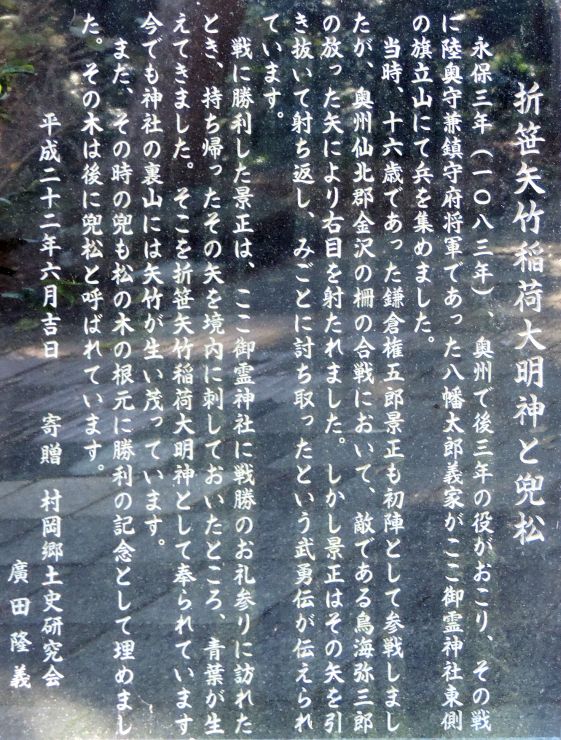 折笹矢竹稲荷大明神と兜松
永保三年（一〇八三年）、奥州で後三年の役がおこり、その戦
に陸奥守兼鎮守府将軍であった八幡太郎義家がここ御霊神社東側
の旗立山にて兵を集めました。
当時、十六歳であった鎌倉権五郎景正も初陣として参戦しまし
たが、奥州仙北郡金沢の柵の合戦において、敵である鳥海弥三郎
の放った矢により右目を射たれました。しかし景正はその矢を引
き抜いて射ち返し、みごとに討ち取ったという武勇伝が伝えられ
ています。
戦に勝利した景正は、ここ御霊神社に戦勝のお礼参りに訪れた
とき、持ち帰ったその矢を境内に刺しておいたところ、青葉が生
えてきました。そこを折笹矢竹稲荷大明神として奉られています。
今でも神社の裏山には矢竹が生い茂っています。
また、その時の兜も松の木の根元に勝利の記念として埋めまし
た。その木は後に兜松と呼ばれています。
平成二十二年六月吉日　寄贈　村岡郷土史研究会
廣田隆義